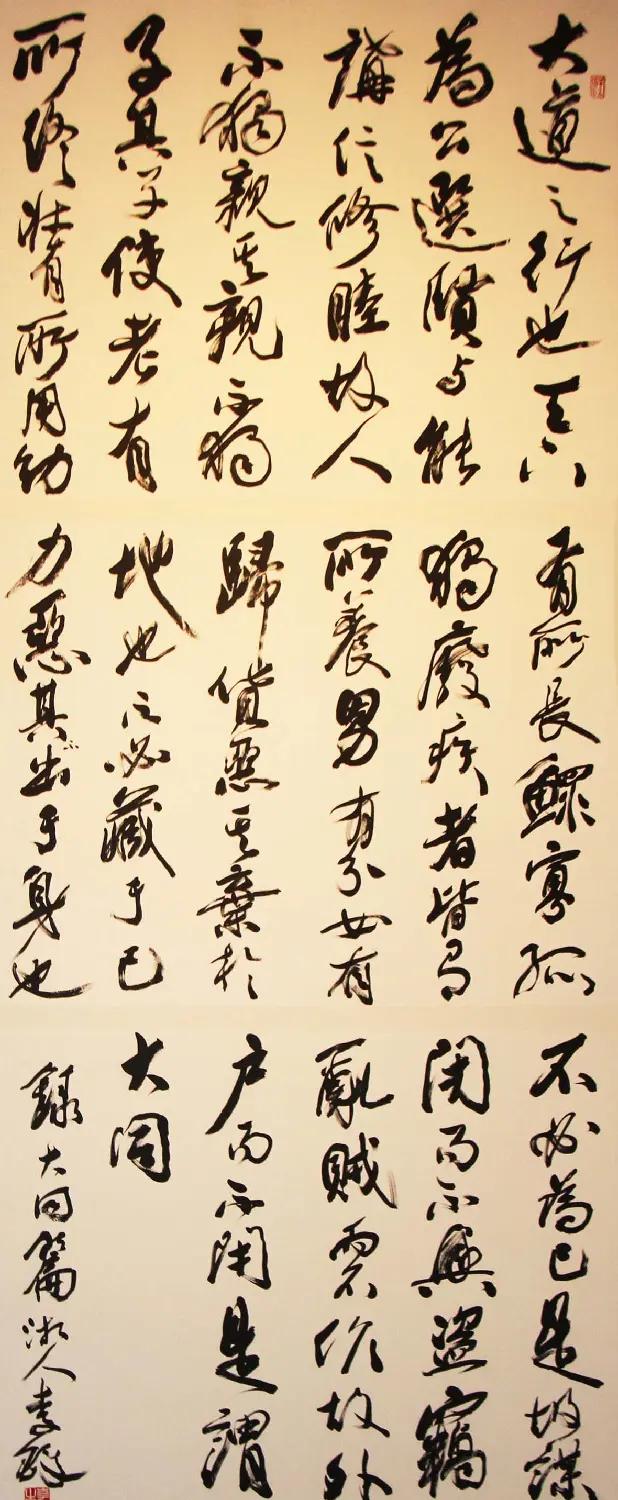 大道之行也天下
為公選賢与能
講信修睦故人
不獨親其親不獨
子其子使老有
所終壯有所用幼
有所長鰥寡孤
獨廢疾者皆有
所養男有分女有
歸貨惡其棄於
地也不必藏于己
力惡其出于身也
不必為己是故謀
閉而不興盜竊
亂賊而不作故外
戶而不閉是謂
大同
錄大同篇人李